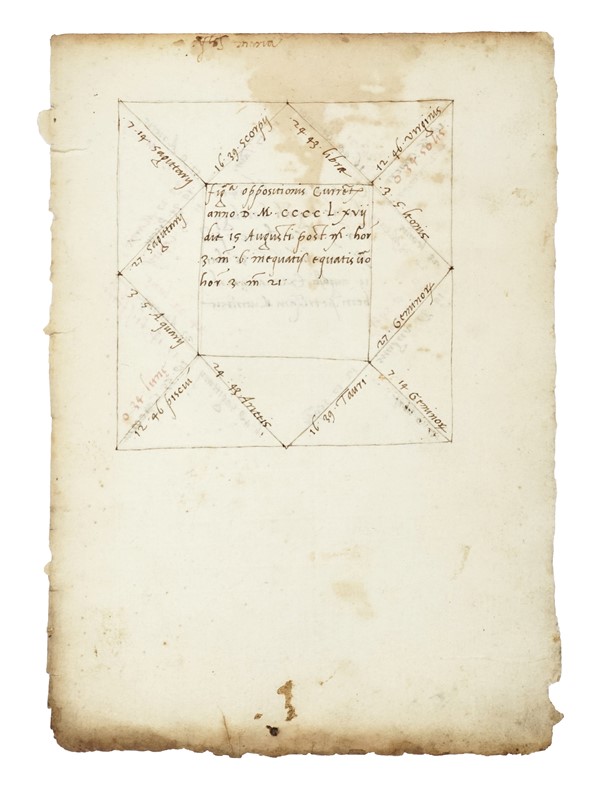 maria
7 · 14 sagittarij
16 · 39 scorpij
24 · 43 libræ
12 · 46 virginis
0 · 34 solis
figª oppositionis Curret
anno D · M · CCCC L · xvij
die 15 Augusti post hor
3 m 6 inequatis equatis
hor 3 m 21
27 sagittarij
3 5 leonis
3 5 Aquarij
27 · Geminor
0 34 lune
12 46 pisciu
24 48 Arietis
16 39 Tauri
7 · 14 Geminor